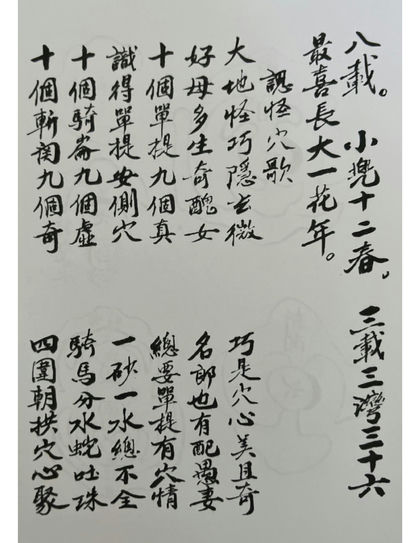 八載。 小兜十二春, 三載三灣三十六
最喜長大一花年。
認怪穴歌
大地怪巧隱玄微 巧是穴心美且奇
好母多生奇醜女 名郎也有配愚妻
十個單提九個真 總要單提有穴情
識得單提安側穴 一砂一水總不全
十個騎崙九個虛 騎馬分水蛇吐珠
十個斬関九個奇 四圍朝拱穴心聚